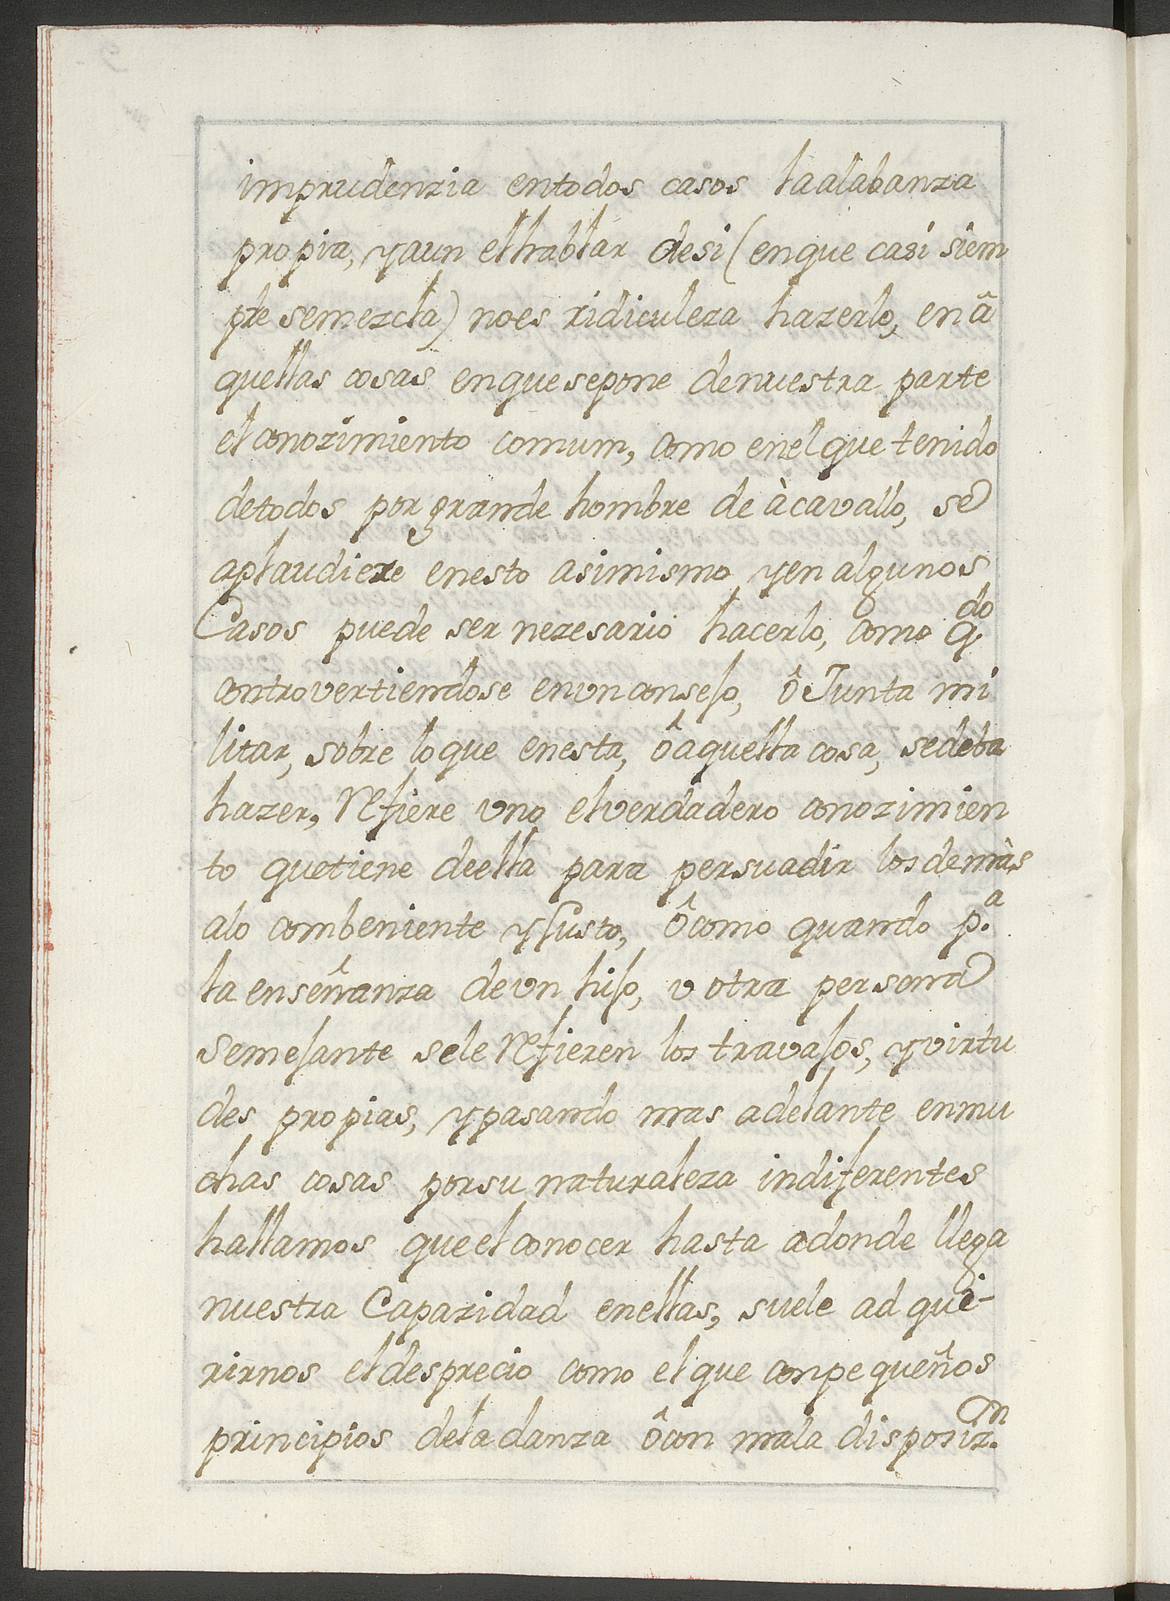 imprudenzia entodos casos laalabanza
propia, yaun elhablar desi (enque casi siem
pre semezcla) noes ridiculeza hazerlo, en â
quellas cosas enquesepone denuestra parte
el conozimiento comum, como enel que tenido
detodos por grande hombre de àcavallo, se
aplaudiere enesto asimismo, yen algunos
Casos puede ser nezesario hacerlo, como q.do
controvertiendose envn consejo, ô Junta mi
litar, sobre loque enesta, ôaquella cosa, sedeba
hazer, Refiere vno elverdadero conozimien
to quetiene deella para persuadir losdemàs
alo combeniente yJusto, ôcomo quando p.a
la enseñanza devn hijo, v otra persona
semejante sele Refieren los travajos, yvirtu
des propias, ypasando mas adelante enmu
chas cosas porsu naturaleza indiferentes
hallamos que el conocer hasta adonde llega
nuestra Capazidad enellas, suele ad que-
rirnos el desprecio como el que conpequeños
principios dela danza ôcon mala disposiz.on